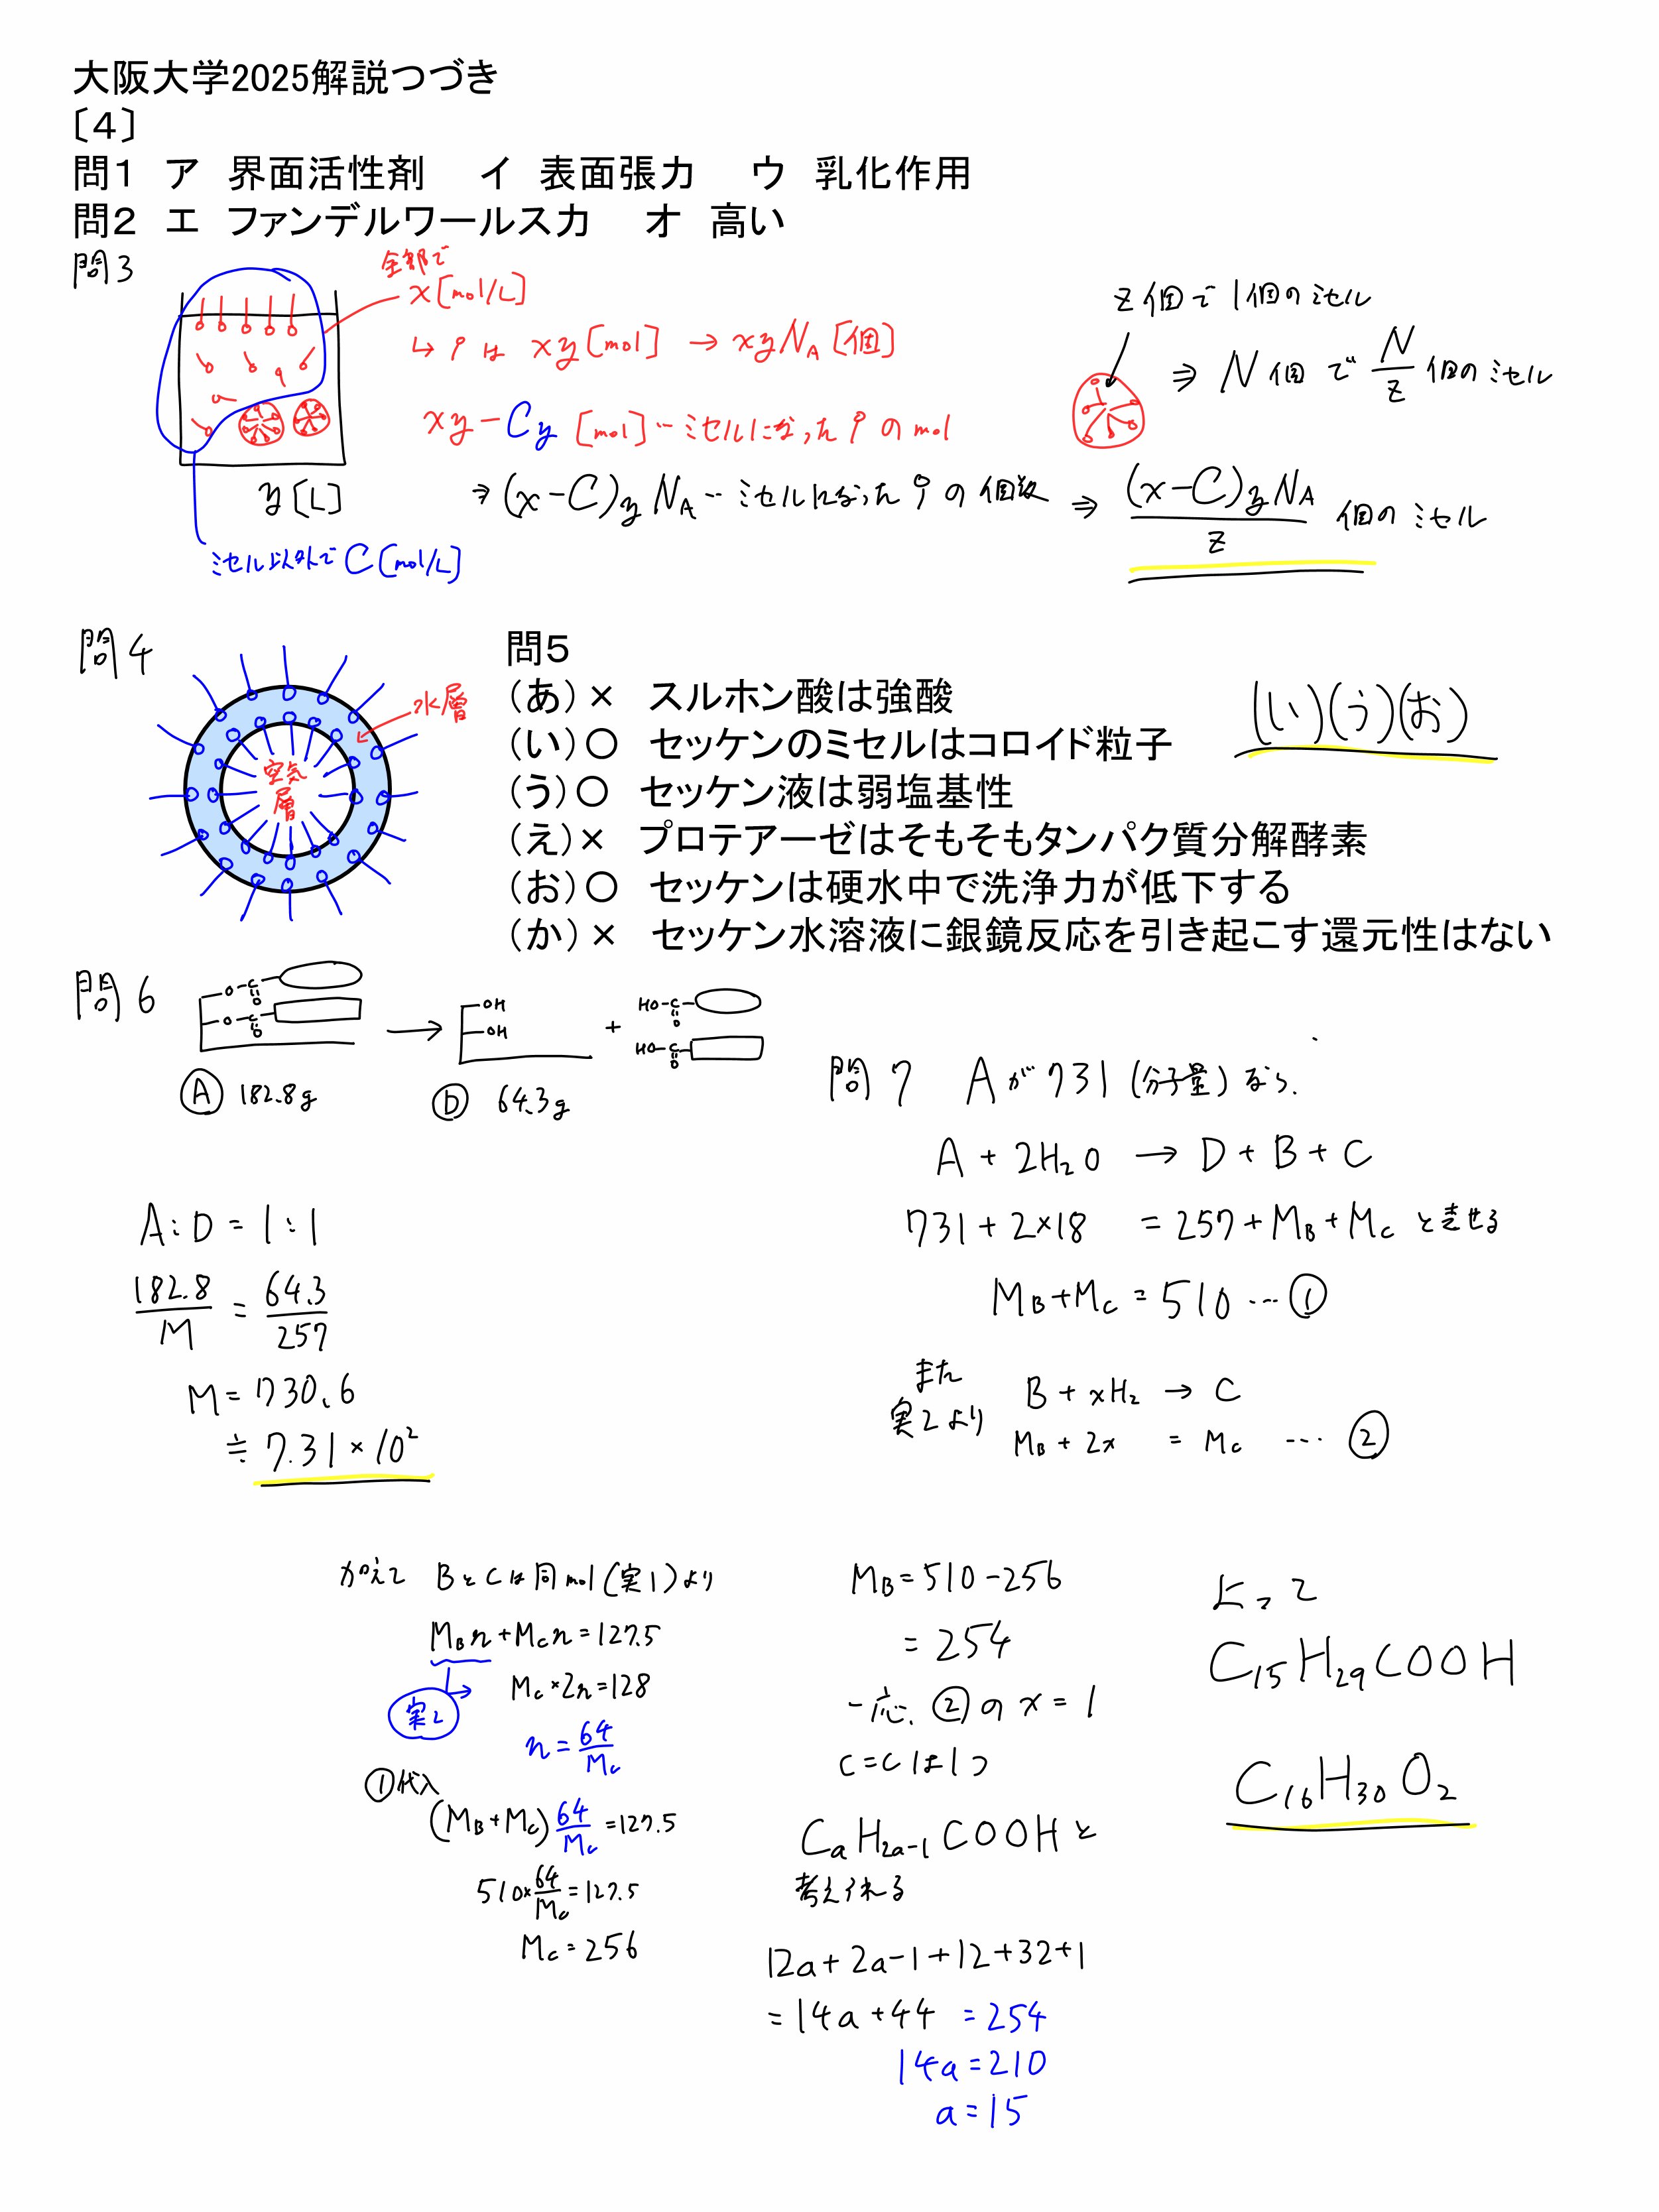 大阪大学2025解説つづき
〔4〕
問1 ア 界面活性剤 イ 表面張力 ウ 乳化作用
問2 エ ファンデルワールス力 オ 高い
問3
全部で
x[mol/L]
↳ は xy[mol] → xyN_A[個]
xy-Cy [mol]…ミセルになった のmol
y[L]
⇒(x-C)yN_A…ミセルになった の個数 ⇒ (x-C)yN_A/z 個のミセル
ミセル以外でC[mol/L]
z個で1個のミセル
⇒ N個でN/z個のミセル
問4
水層
空気層
問5
(あ)× スルホン酸は強酸
(い)〇 セッケンのミセルはコロイド粒子
(う)〇 セッケン液は弱塩基性
(え)× プロテアーゼはそもそもタンパク質分解酵素
(お)〇 セッケンは硬水中で洗浄力が低下する
(か)× セッケン水溶液に銀鏡反応を引き起こす還元性はない
(い)(う)(お)
問6
-O-C-
=O
-O-C-
=O
→
-OH
-OH
+
HO-C-
=O
HO-C-
=O
Ⓐ 182.8g
Ⓓ 64.3g
A:D=1:1
182.8/M = 64.3/257
M=730.6
≒7.31×10²
問7 Aが731(分子量)なら、
A+2H₂O → D+B+C
731+2×18 =257+M_B+M_C と表せる
M_B+M_C=510…①
また
実2より
B+xH₂→C
M_B+2x =M_C …②
加えて BとCは同mol(実1)より
M_Bn+M_Cn=127.5
実2
M_C×2n=128
n=64/M_C
①代入
(M_B+M_C)64/M_C=127.5
510×64/M_C=127.5
M_C=256
M_B=510-256
=254
一応、②のx=1
C=Cは1つ
CaH2a-1COOHと
考えられる
12a+2a-1+12+32+1
=14a+44 =254
14a=210
a=15
よって
C₁₅H₂₉COOH
C₁₆H₃₀O₂